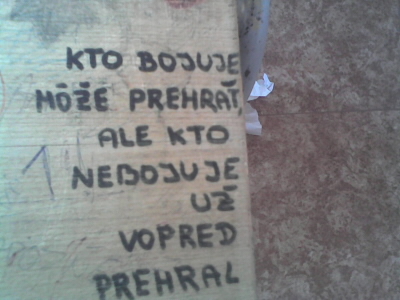 KTO BOJUJE
MÔŽE PREHRAŤ,
ALE KTO
NEBOJUJE
UŽ
VOPRED
PREHRAL